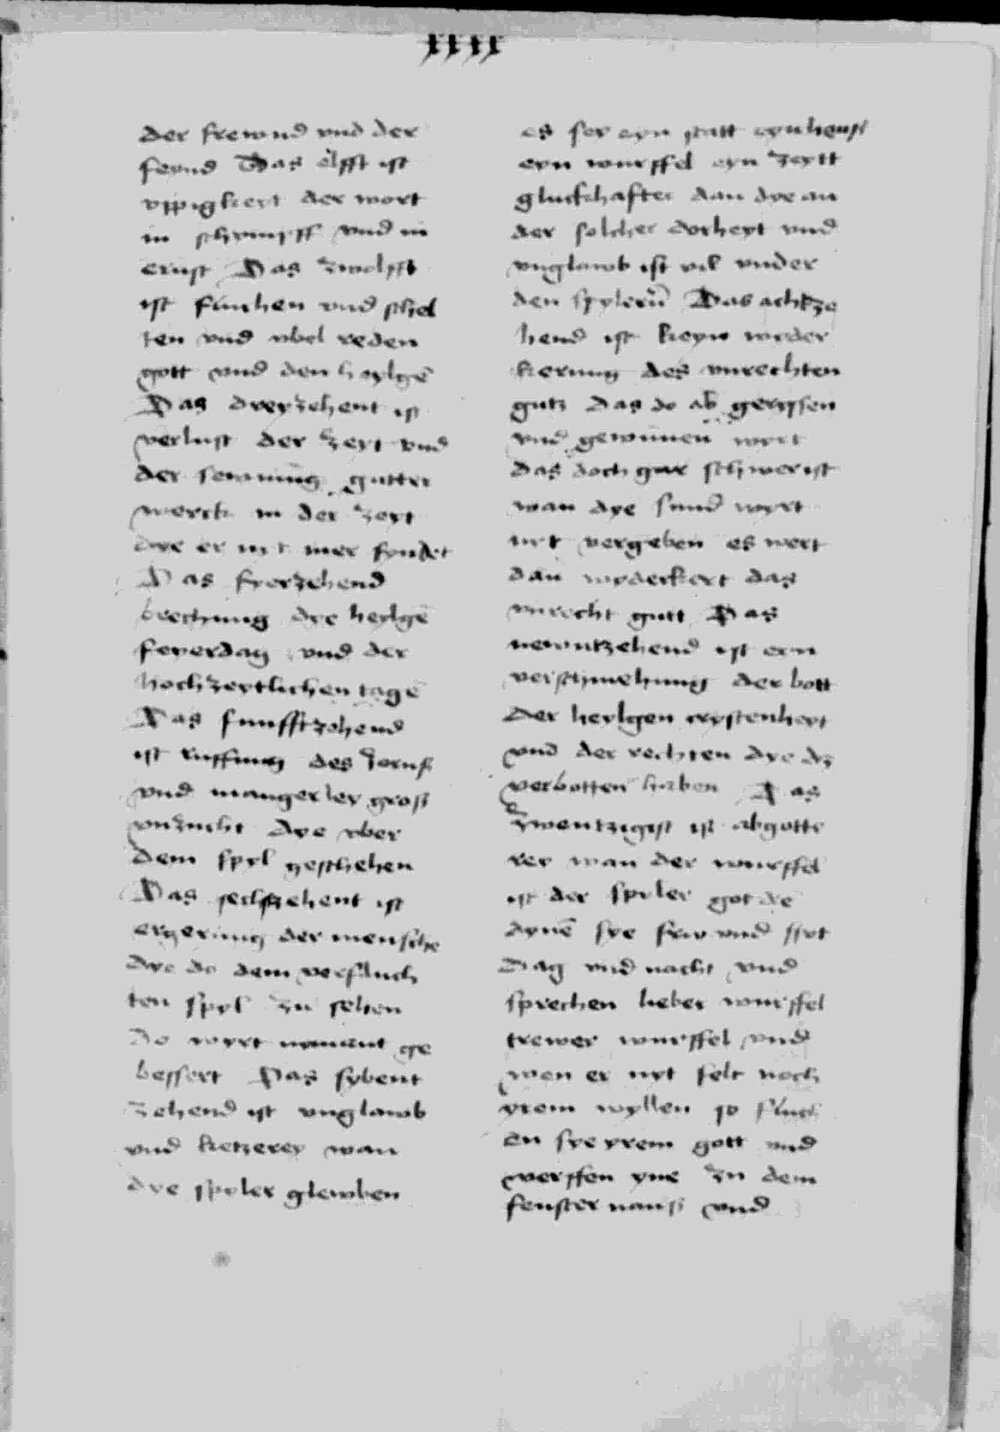 der frewnd vnd der
feynd Das elfft ist
vppigkeyt der wort
in schympff vnd in
ernst Das zwolfft
ist fluchen vnd schel
ten vnd vbel reden
gott vnd den heylgē
Das dreyzehent ist
verlust der zeyt vnd
der gutter
werck in der zeyt
dye er nit mer fyndet
Das fyerzehend
brechung dye heylgē
feyerdag vnd der
hochzeytlichen tagē
Das funfftzehend
ist ruffung des zorns
vnd mangerley groß
vnzucht dye vber
dem spyl geschehen
Das sechzehent ist
ergerung der mensche
dye do dem verfluch
ten spyl zu sehen
do wyrt nymant ge
bessert Das sybent
zehend ist vnglawb
vnd ketzerey wan
dye spyler glewben
es sey eyn statt eyn heuß
eyn wurffel eyn zeytt
gluckhafter dan dye an
der solcher dorheyt vnd
vnglawb ist vil vnder
den spylerū Das achtze
hend ist keyn wyder
kerung des vnrechten
gutz das do ab gerissen
vnd gewūnen wyrt
das doch gar schwer ist
wan dye sund wyrt
nyt vergeben es wert
dan wyderkert das
vnrecht gutt Das
newntzehend ist eyn
verschmehung der bott
der heylgen crystenheyt
vnd der rechten dye dz
verbotten haben Das
zwentzigist ist abgotte
rey wan der wurffel
ist der spyler got dē
dynē sye frw vnd spyt
dag vnd nacht vnd
sprechen lieber wurffel
trewer wurffel vnd
wen er nyt felt noch
yrem wyllen so fluch
en sye yrem gott vnd
werffen yne zu dem
fenster nauß vnd